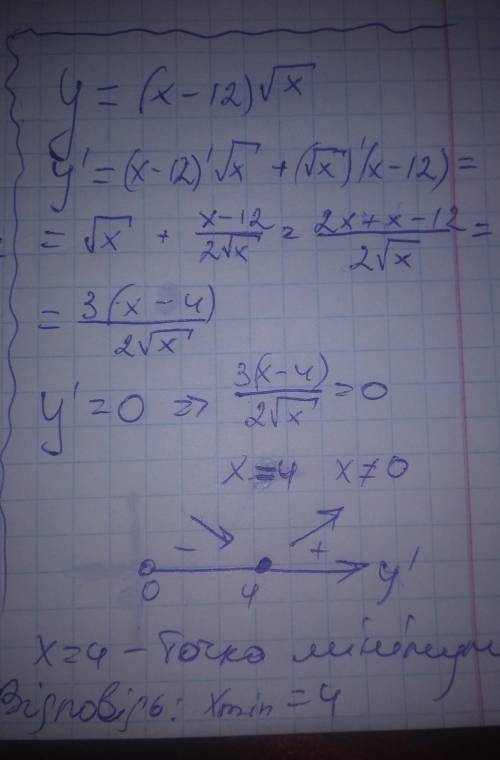 y = (x-12)√x
y' = (x-12)'√x + (√x)'(x-12) =
= √x + (x-12)/(2√x) = (2x+x-12)/(2√x) =
= 3(x-4)/(2√x)
y' = 0 => 3(x-4)/(2√x) = 0
x=4 x≠0
- +
0 4 y'
x=4 - точка мінімум
Відповідь: xmin = 4